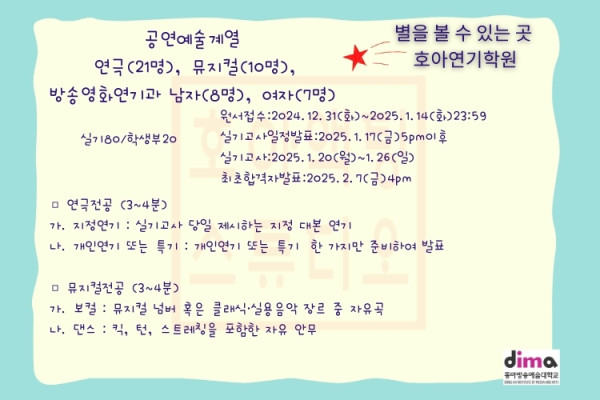 별을 볼 수 있는 곳
호아연기학원
공연예술계열
연극(21명), 뮤지컬(10명),
방송영화연기과 남자(8명), 여자(7명)
실기80/학생부20
원서접수:2024.12.31(화)~2025.1.14(화)23:59
실기고사일정발표:2025.1.17(금)5pm이후
실기고사:2025.1.20(월)~1.26(일)
최초합격자발표:2025.2.7(금)4pm
□ 연극전공 (3~4분)
가. 지정연기 : 실기고사 당일 제시하는 지정 대본 연기
나. 개인연기 또는 특기 : 개인연기 또는 특기 한 가지만 준비하여 발표
□ 뮤지컬전공 (3~4분)
가. 보컬 : 뮤지컬 넘버 혹은 클래식·실용음악 장르 중 자유곡
나. 댄스 : 킥, 턴, 스트레칭을 포함한 자유 안무
dima
동아방송예술대학교